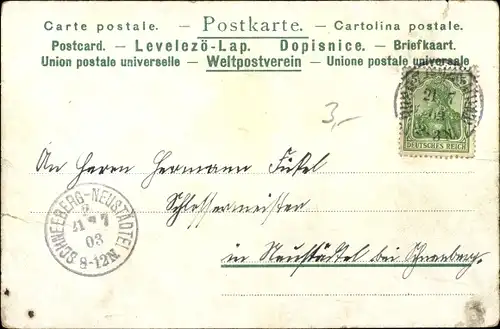 Carte postale. — Postkarte. — Cartolina postale.
Postcard. — Levelezö-Lap. Dopisnice. — Briefkaart.
Union postale universelle — Weltpostverein — Unione postale universale
21 7
03
DEUTSCHES REICH
3,-
An Herrn Hermann Fükel
Schlossermeister
in Neustädtel bei Schneeberg.
SCHNEEBERG-NEUSTÄDTEL
21 7
03
8-12N.